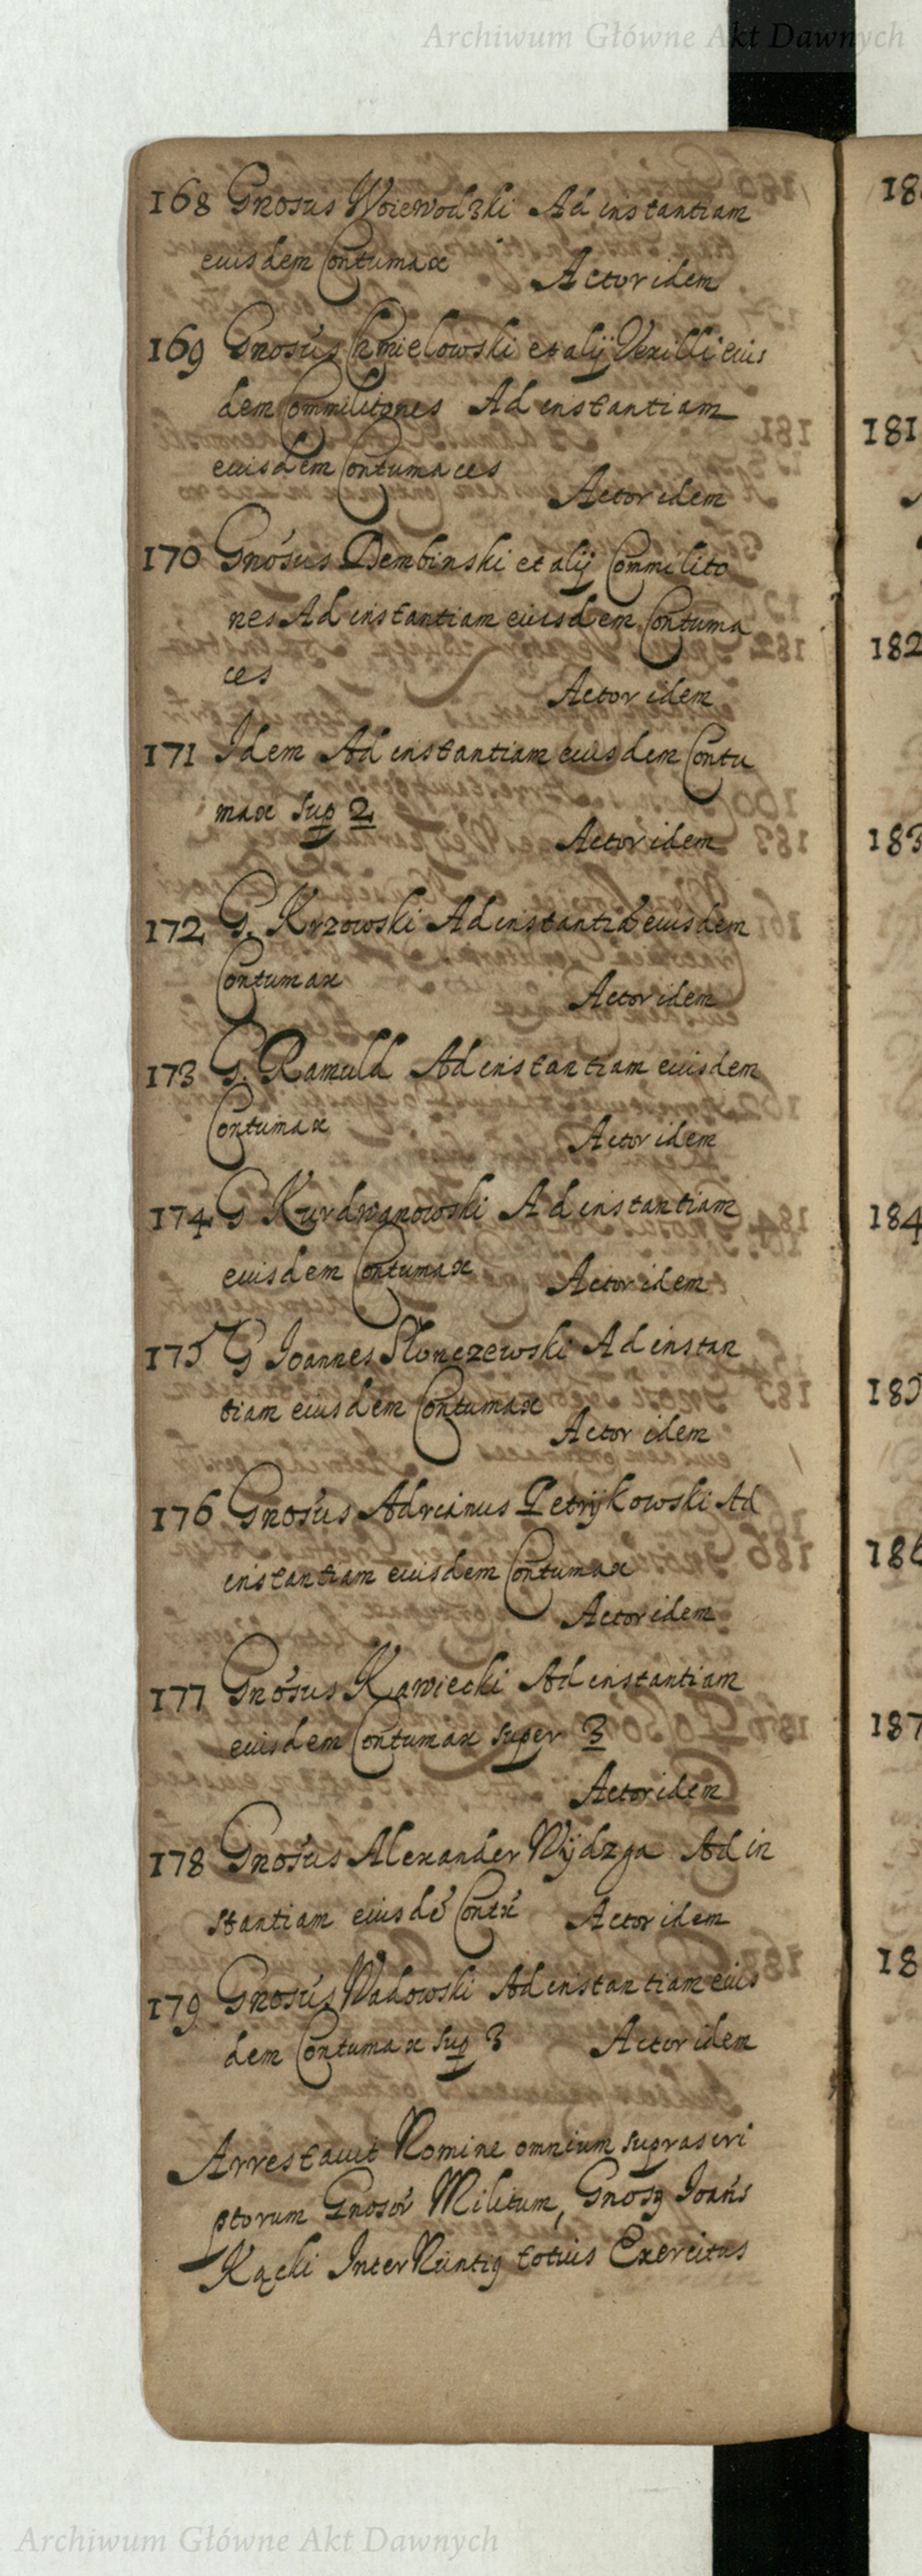 Archiwum Główne Akt Dawnych
168 Gnosus Woiewodzki Ad instantiam
eiusdem Contumax Actor idem
169 Gnosus Chmielowski et alij Vexilli eius
dem Commilitones Ad instantiam
eiusdem Contumaces
Actor idem
170 Gnosus Dembinski et alij Commilito
nes Ad instantiam eiusdem Contuma
ces Actor idem
171 Idem Ad instantiam eiusdem Contu
max sup 2
Actor idem
172 G. Krzowski Ad instantiã eiusdem
Contumax Actor idem
173 G. Ramuld Ad instantiam eiusdem
Contumax Actor idem
174 G Kurdwanowski Ad instantiam
eiusdem Contumax Actor idem
175 G Joannes Slonczewski Ad instan
tiam eiusdem Contumax
Actor idem
176 Gnosus Adrianus Petrijkowski Ad
instantiam eiusdem Contumax
Actor idem
177 Gnosus Kawiecki Ad instantiam
eiusdem Contumax super 3
Actor idem
178 Gnosus Alexander Wijdzga Ad in
stantiam eiusdē Contx Actor idem
179 Gnosus Wadowski Ad instantiam eius
dem Contumax sup 3 Actor idem
Arrestavit Nomine omnium suprascri
ptorum Gnosor Militum, Gnosq Joans
Kącki InterNuntiq totius Exercitus
181
182
183
184
185
186
187
Archiwum Główne Akt Dawnych